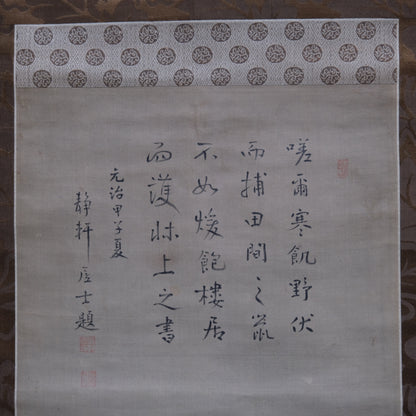 嗟爾寒飢野伏
而捕田間之鼠
不如煖飽樓居
而護牀上之書
元治甲子夏
静軒居士題